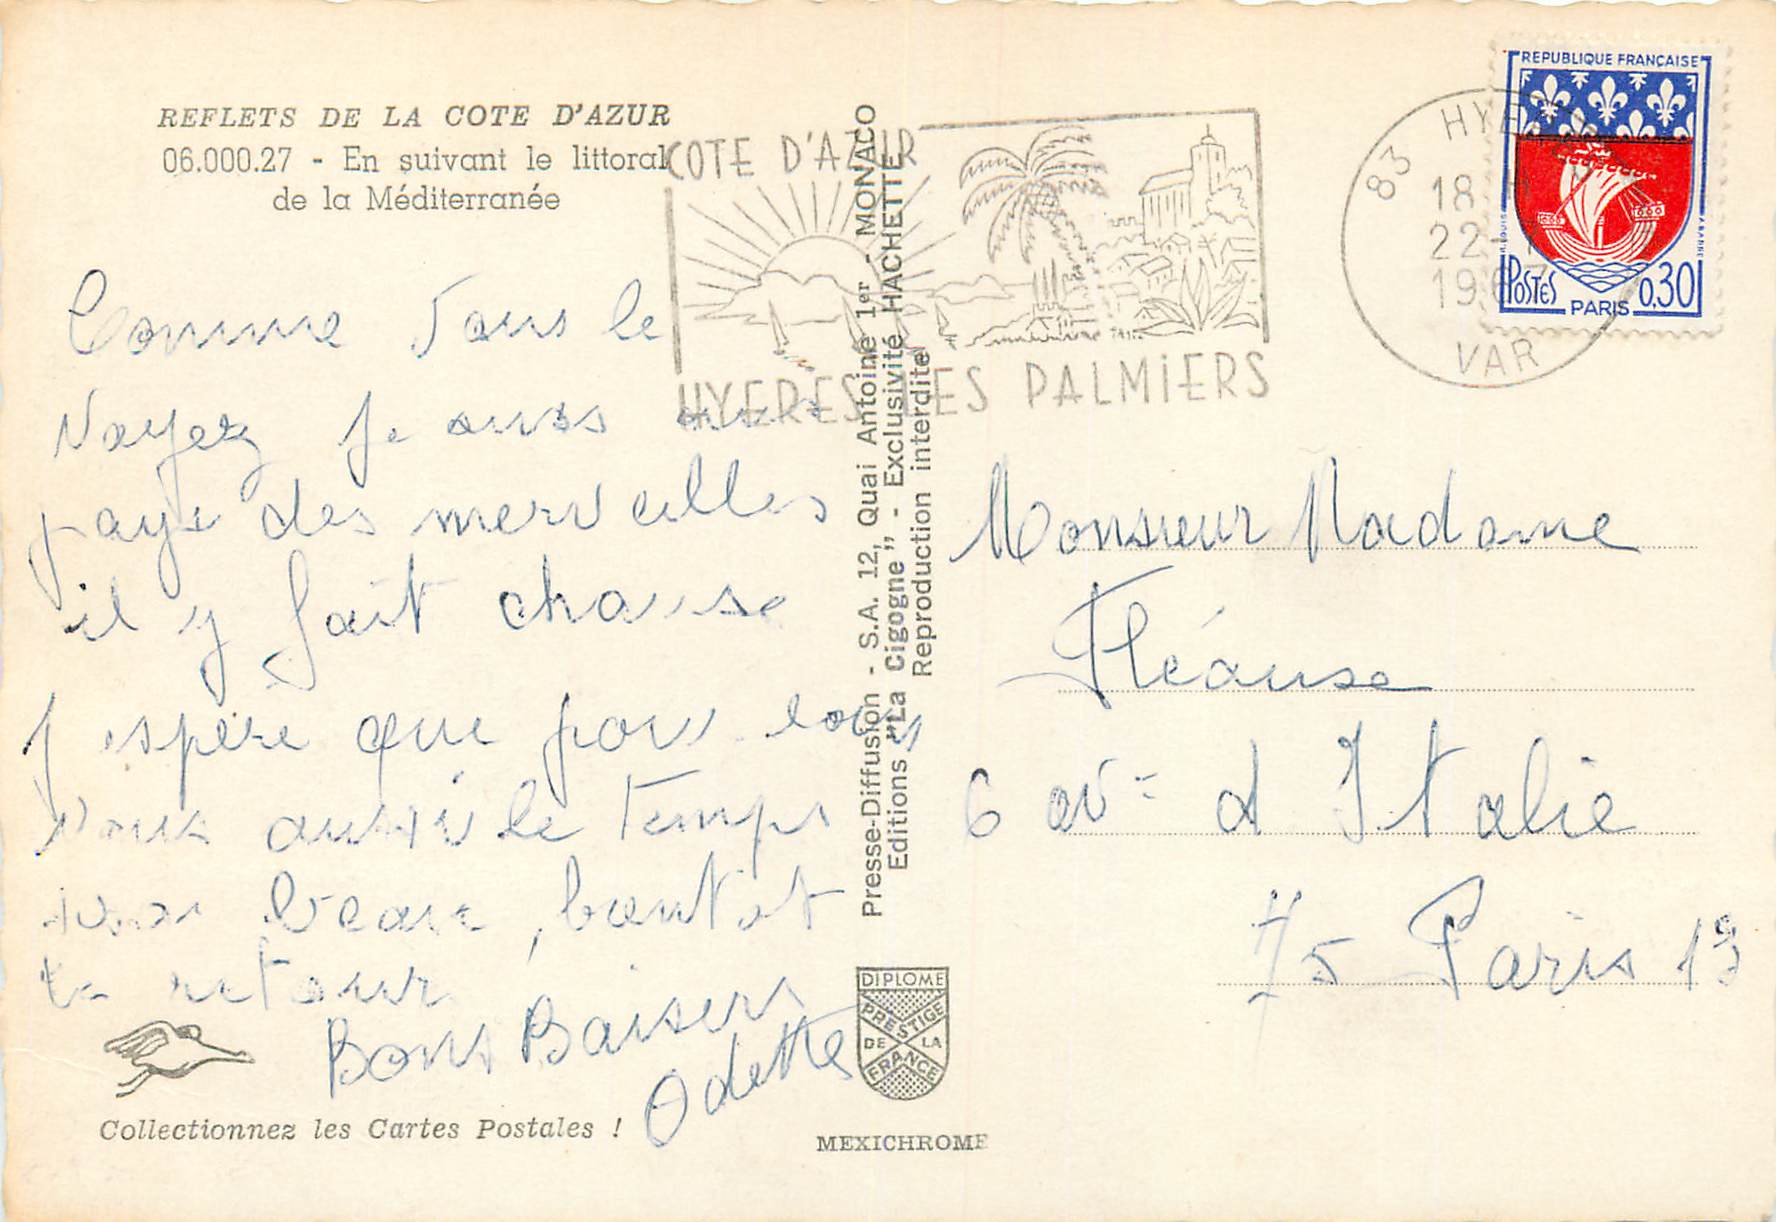 REFLETS DE LA COTE D'AZUR
06.000.27 - En suivant le littoral
de la Méditerranée
Comme vous le
voyez je suis au
pays des merveilles
il y fait chause
J espère que pour
vous aussi le temps
beau, bientot
le retour
Bons Baisers
Odette
Collectionnez les Cartes Postales !
COTE D'AZUR
HYERES LES PALMIERS
Presse-Diffusion - S.A. 12, Quai Antoine 1er - MONACO
Editions "La Cigogne" - Exclusivité HACHETTE
Reproduction interdite
DIPLOME
PRESTIGE
DE LA
FRANCE
MEXICHROME
83 HYERES
18
22
19
VAR
REPUBLIQUE FRANÇAISE
POSTES
PARIS
0,30
Monsieur Madame
Fléause
6 av= d Italie
75 Paris 13